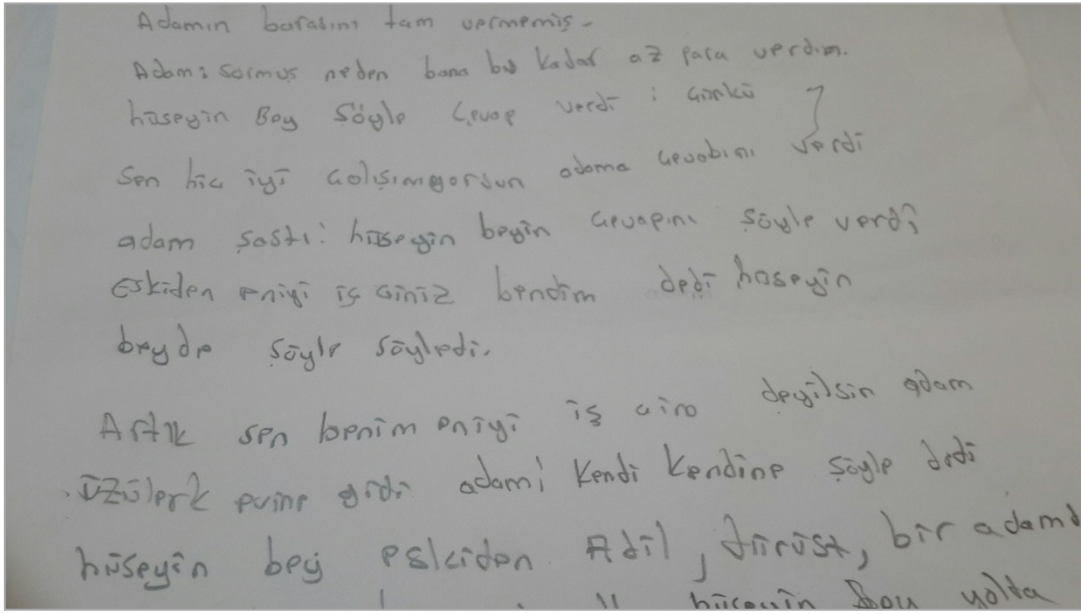 Adamın barasını tam vermemiş.
Adam: sormuş neden bana bu kadar az para verdim.
hüseyin Bey Söyle Cevap verdi : Günkü
Sen hic iyi calışmıyorsun adama cevabını verdi
adam şastı: hüseyin beyin cevapını söyle verdi
Eskiden eniyi iş ciniz bendim dedi hüseyin
beyde söyle söyledi.
Artık sen benim eniyi iş cim deyilsin adam
üzülerk evine gidi adam; kendi kendine söyle dedi
hüseyin bey eskiden Adil, dürüst, bir adamd
hüseyin Bey yolda